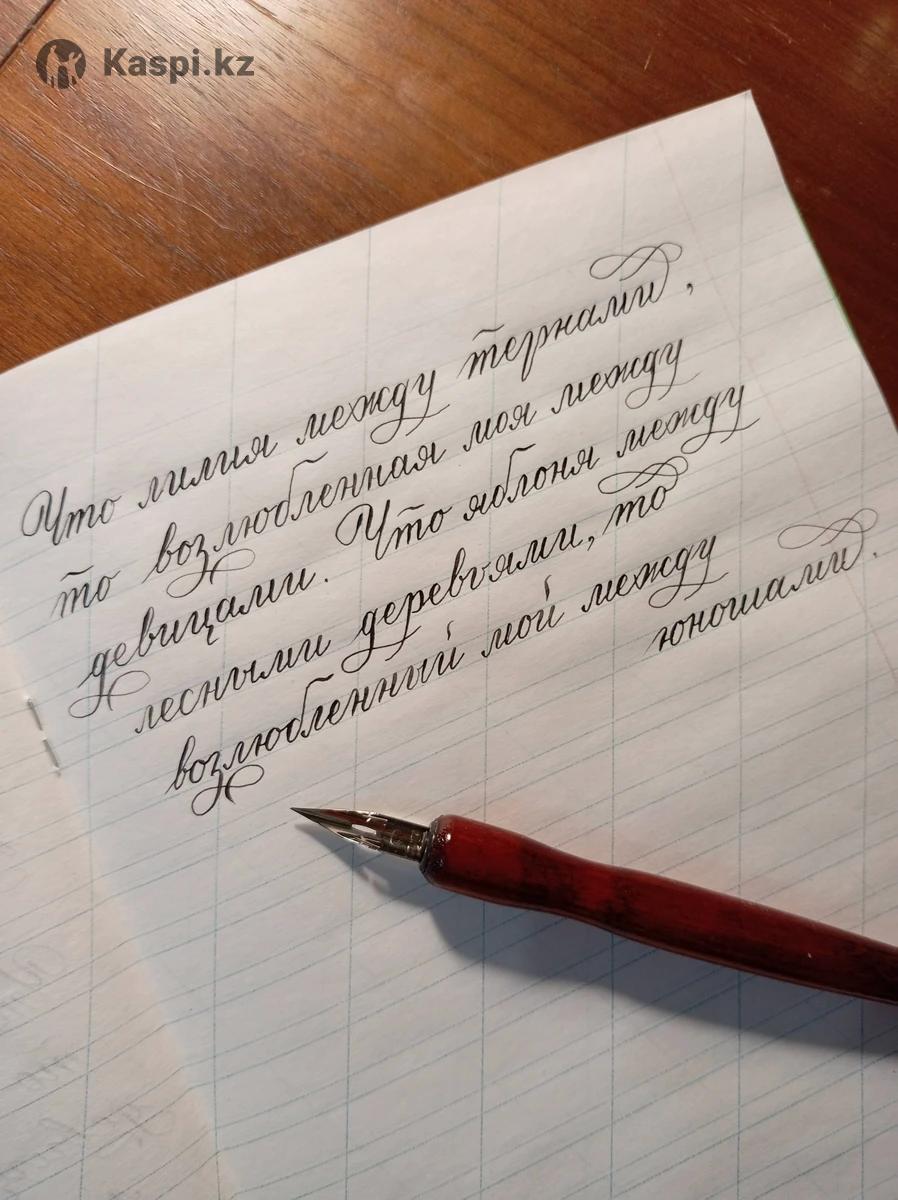 Kaspi.kz
Что лилия между тернами,
то возлюбленная моя между
девицами. Что яблоня между
лесными деревьями, то
возлюбленный мой между
юношами.